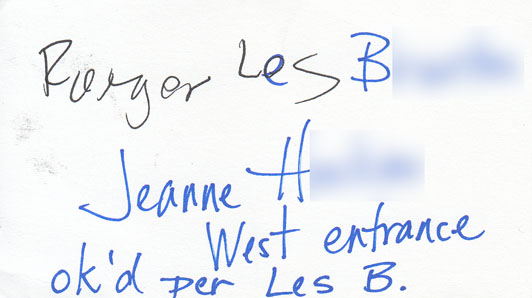 Roeger Les B
Jeanne H
West entrance
ok'd per Les B.